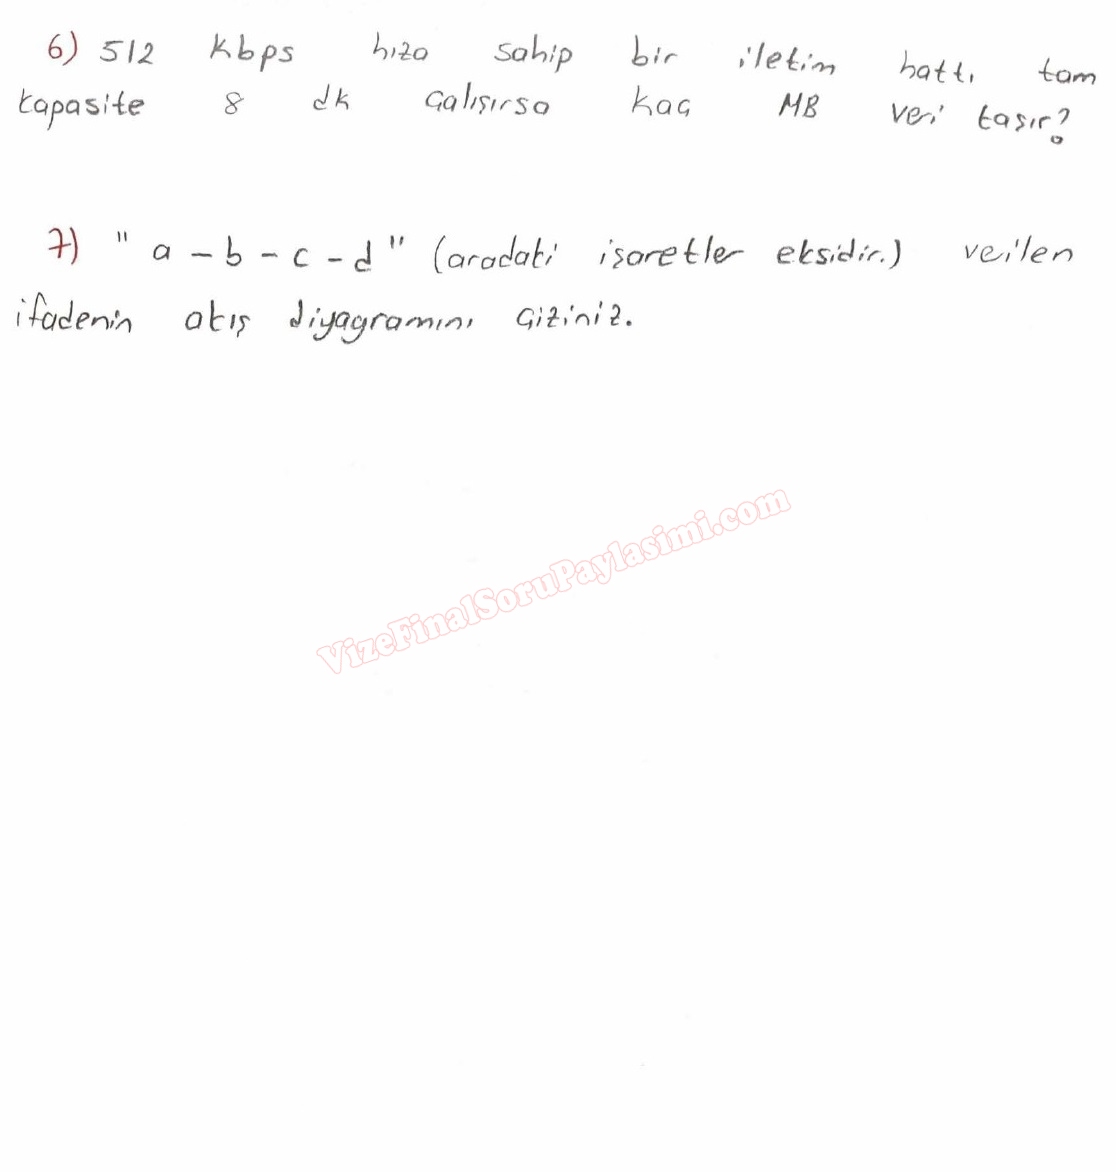 6) 512 kbps hıza sahip bir iletim hattı tam
kapasite 8 dk çalışırsa kaç MB veri taşır?
7) "a - b - c - d" (aradaki işaretler eksidir.) verilen
ifadenin akış diyagramını çiziniz.
VizeFinalSoruPaylasimi.com